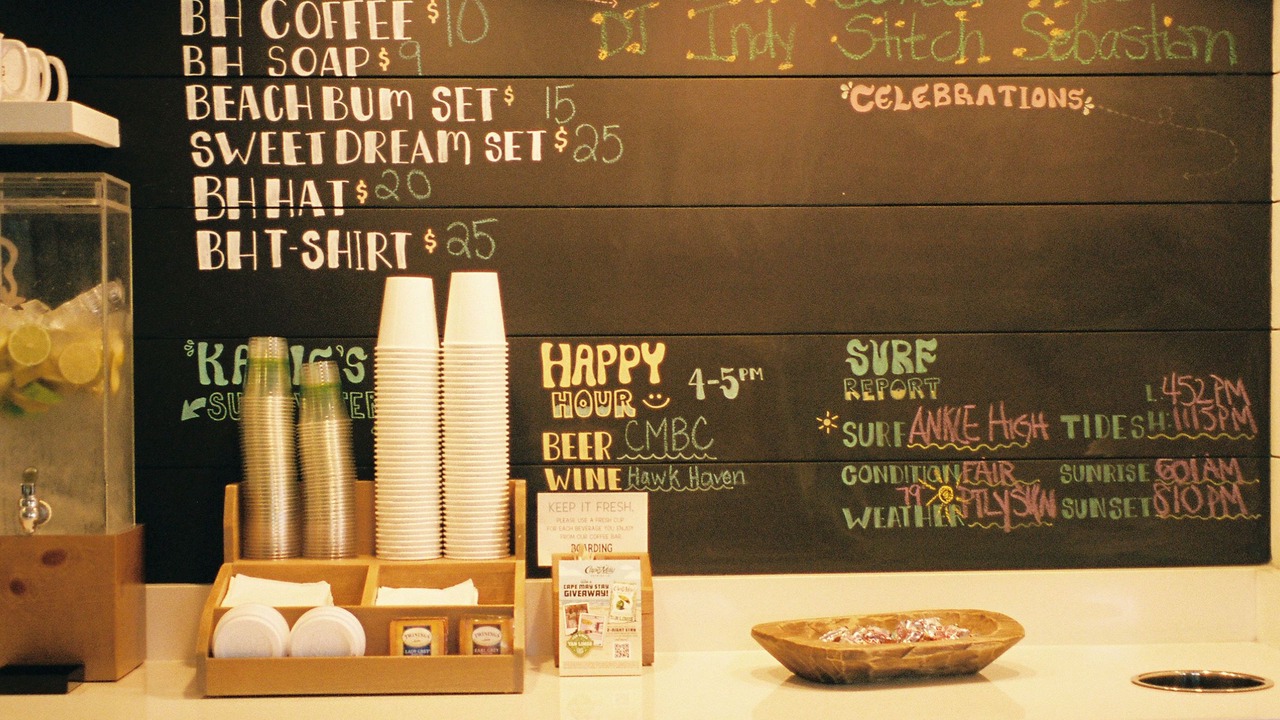 BH COFFEE $10
BH SOAP $9
BEACH BUM SET $15
SWEET DREAM SET $25
BH HAT $20
BH T-SHIRT $25
DJ Indy Stitch Sebastian
CELEBRATIONS
HAPPY
HOUR
4-5PM
BEER CMBC
WINE Hawk Haven
SURF
REPORT
SURF ANKLE HIGH
CONDITION FAIR
WEATHER 79 PTLY SUN
L: 452PM
TIDES H: 1115PM
SUNRISE 601AM
SUNSET 810PM
KEEP IT FRESH,
PLEASE USE A FRESH CUP
FOR EACH BEVERAGE YOU ENJOY
FROM OUR COFFEE BAR.
BOARDING
CAPE MAY STAY
GIVEAWAY!
TWININGS
LADY GREY
TWININGS
EARL GREY